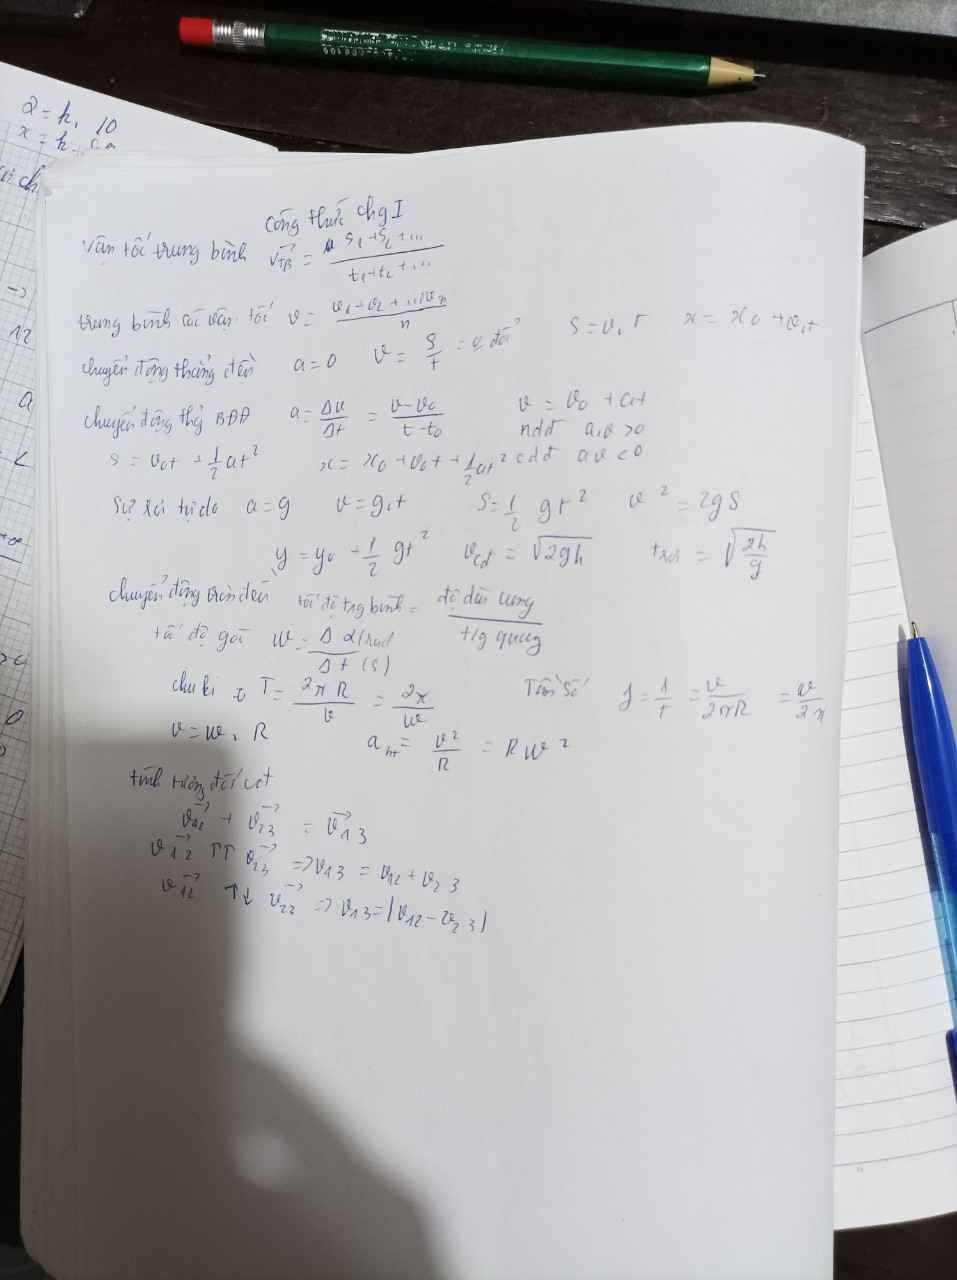 Công thức chg I
Vận tốc trung bình v⃗TB = S1 + S2 + ... / t1 + t2 + ...
trung bình các vận tốc v = v1 + v2 + ... vn / n
chuyển động thẳng đều a = 0 v = S/t = ko đổi S = v.t x = x0 + v.t
chuyển động thg BĐĐ a = Δv/Δt = v - v0 / t - t0 v = v0 + at
ndđ a.v > 0
s = v0t + 1/2 at² x = x0 + v0t + 1/2 at² cdđ av < 0
Sự rơi tự do a = g v = g.t S = 1/2 gt² v² = 2gS
y = y0 + 1/2 gt² vcđ = √2gh trơi = √2h/g
chuyển động tròn đều tốc độ trg bình = độ dài cung / t/g
tốc độ góc w = Δα(rad / Δt (s)
chu kì T = 2πR/v = 2π/w Tần số f = 1/T = v/2πR = w/2π
v = w.R aht = v²/R = Rw²
tính tương đối
v⃗12 + v⃗23 = v⃗13
v⃗12 ↑↑ v⃗23 => v13 = v12 + v23
v⃗12 ↑↓ v⃗23 => v13 = |v12 - v23|
a = k. 10
x = k